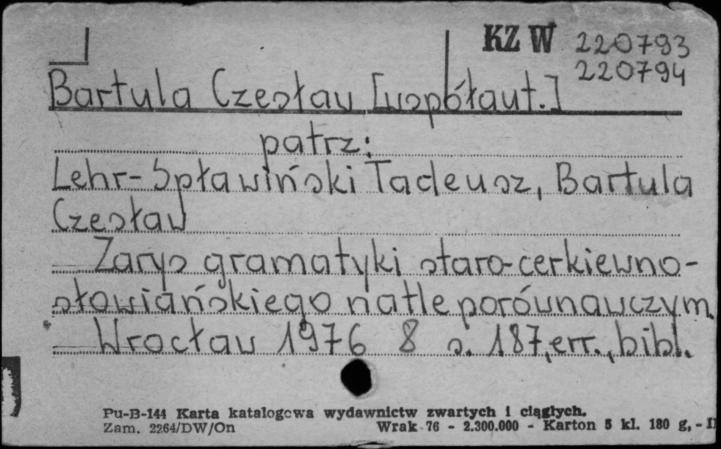 KZ W 220793
220794
Bartula Czesław [współaut.]
patrz:
Lehr-Spławiński Tadeusz, Bartula
Czesław
Zarys gramatyki staro-cerkiewno-
słowiańskiego na tle porównawczym.
Wrocław 1976 8 s. 187, err., bibl.
Pu-B-144 Karta katalogowa wydawnictw zwartych i ciągłych.
Zam. 2264/DW/On Wrak 76 - 2.300.000 - Karton 5 kl. 180 g, - II